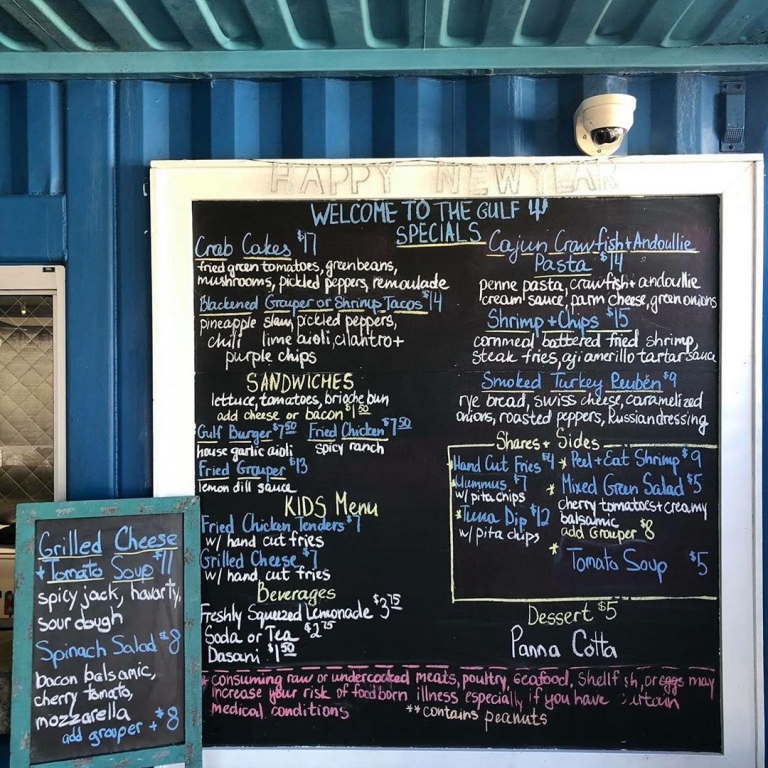 HAPPY NEW YEAR
WELCOME TO THE GULF 4
SPECIALS
Crab Cakes $17
fried green tomatoes, green beans,
mushrooms, pickled peppers, remoulade
Blackened Grouper or Shrimp Tacos $14
pineapple slaw, pickled peppers,
chili lime aioli, cilantro +
purple chips
SANDWICHES
lettuce, tomatoes, brioche bun
add cheese or bacon $1.50
Gulf Burger $7.50 Fried Chicken $7.50
house garlic aioli spicy ranch
Fried Grouper $13
lemon dill sauce
KIDS Menu
Fried Chicken Tenders $7
w/ hand cut fries
Grilled Cheese $7
w/ hand cut fries
Beverages
Freshly Squeezed Lemonade $3.75
Soda or Tea $2.75
Dasani $1.50
Cajun Crawfish + Andoullie
Pasta $14
penne pasta, crawfish + andoullie
cream sauce, parm cheese, green onions
Shrimp + Chips $15
cornmeal battered fried shrimp,
steak fries, aji amerillo tartar sauce
Smoked Turkey Reuben $9
rye bread, swiss cheese, caramelized
onions, roasted peppers, Russian dressing
Shares + Sides
Hand Cut Fries $4
Hummus $7
w/ pita chips
*Tuna Dip $12
w/ pita chips
* Peel + Eat Shrimp $9
* Mixed Green Salad $5
cherry tomatoes + creamy
balsamic
add Grouper $8
* Tomato Soup $5
Dessert $5
Panna Cotta
* consuming raw or undercooked meats, poultry, seafood, Shellfish, or eggs may
increase your risk of foodborn illness especially if you have certain
medical conditions
**contains peanuts
Grilled Cheese
+ Tomato Soup $11
spicy jack, havarty,
sour dough
Spinach Salad $8
bacon balsamic,
cherry tomato,
mozzarella
add grouper + $8